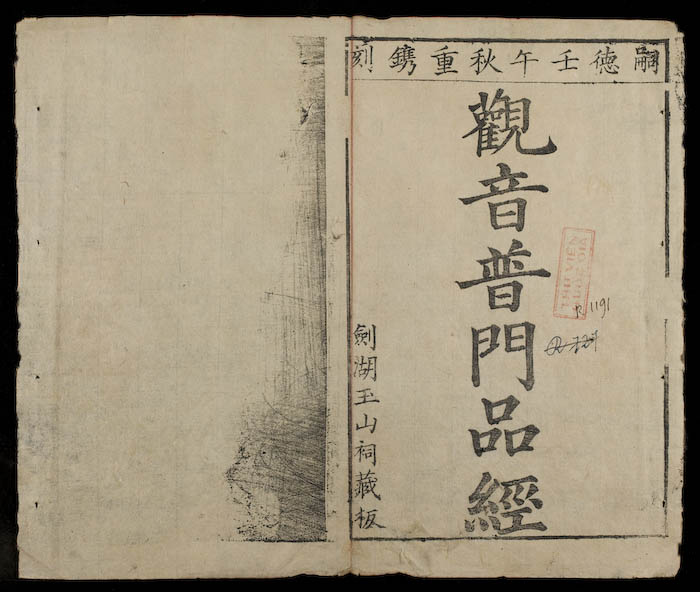 嗣德壬午秋重鐫刻
觀音普門品經
劍湖玉山祠藏板
R 1191